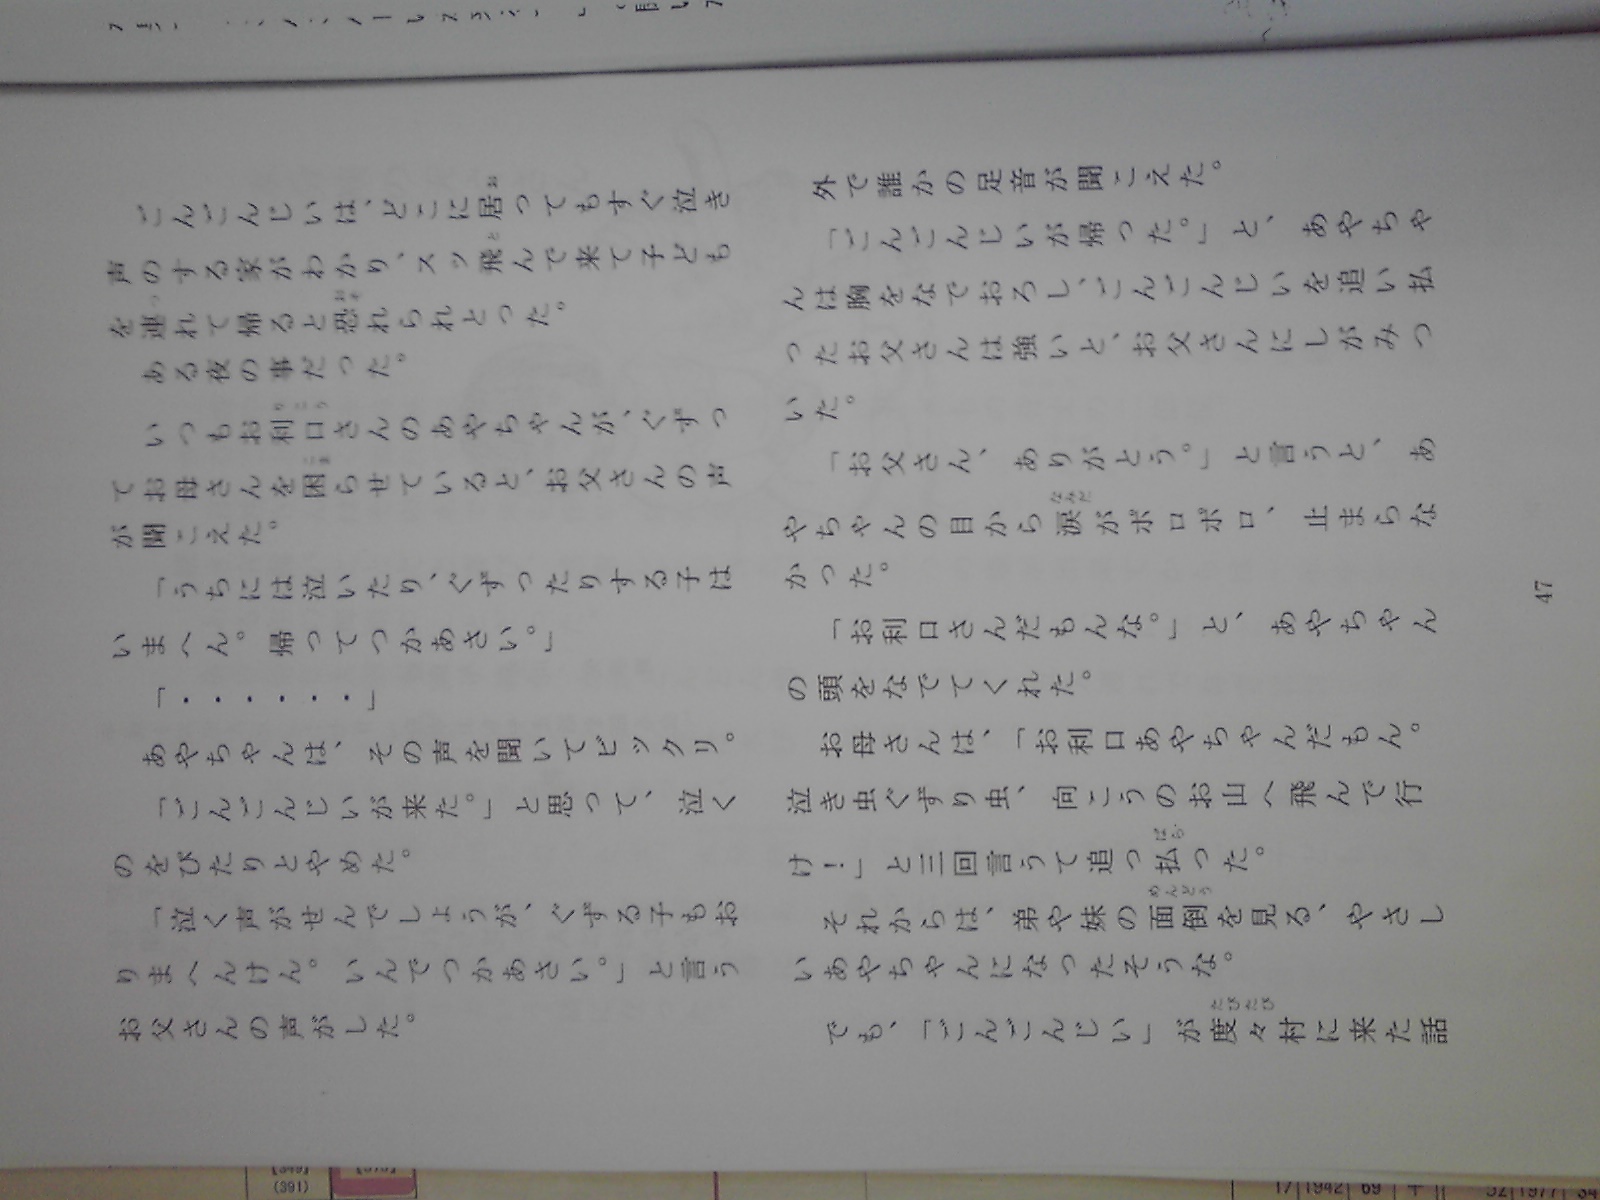 ごんごんじいは、どこに居ってもすぐ泣き
声のする家がわかり、スッ飛んで来て子ども
を連れて帰ると恐れられとった。
ある夜の事だった。
いつもお利口さんのあやちゃんが、ぐずっ
てお母さんを困らせていると、お父さんの声
が聞こえた。
「うちには泣いたり、ぐずったりする子は
いまへん。帰ってつかあさい。」
「・・・・・・」
あやちゃんは、その声を聞いてビックリ。
「ごんごんじいが来た。」と思って、泣く
のをぴたりとやめた。
「泣く声がせんでしょうが、ぐずる子もお
りまへんけん。いんでつかあさい。」と言う
お父さんの声がした。
外で誰かの足音が聞こえた。
「ごんごんじいが帰った。」と、あやちゃ
んは胸をなでおろし、ごんごんじいを追い払
ったお父さんは強いと、お父さんにしがみつ
いた。
「お父さん、ありがとう。」と言うと、あ
やちゃんの目から涙がポロポロ、止まらな
かった。
「お利口さんだもんな。」と、あやちゃん
の頭をなでてくれた。
お母さんは、「お利口あやちゃんだもん。
泣き虫ぐずり虫、向こうのお山へ飛んで行
け！」と三回言うて追っ払った。
それからは、弟や妹の面倒を見る、やさし
いあやちゃんになったそうな。
でも、「ごんごんじい」が度々村に来た話
47
(391)
17 1942 69
52 1977 34